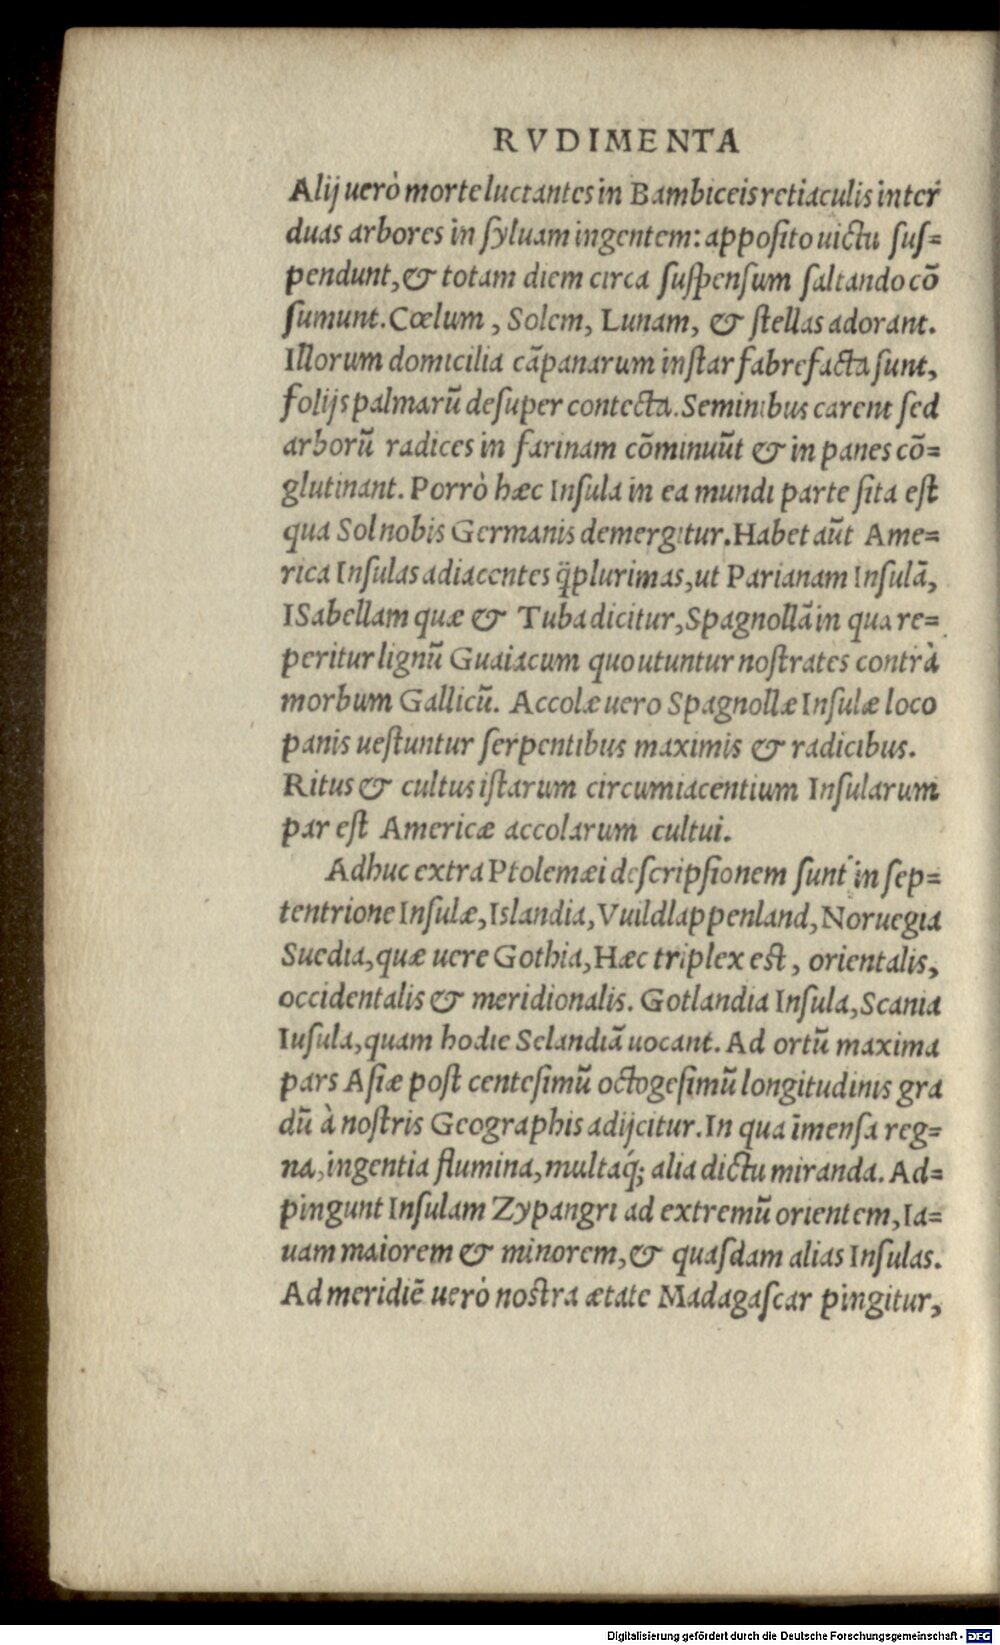 RVDIMENTA
Alij uerò morte luctantes in Bambiceis retiaculis inter
duas arbores in ſyluam ingentem: appoſito uictu ſuſ=
pendunt, & totam diem circa ſuſpenſum ſaltando cō
ſumunt. Cœlum, Solem, Lunam, & ſtellas adorant.
Illorum domicilia cāpanarum inſtar fabrefacta ſunt,
folijs palmarū deſuper contecta. Seminibus carent ſed
arborū radices in farinam cōminuūt & in panes cō=
glutinant. Porrò hæc Inſula in ea mundi parte ſita eſt
qua Sol nobis Germanis demergitur. Habet aūt Ame=
rica Inſulas adiacentes q̈plurimas, ut Parianam Inſulā,
ISabellam quæ & Tuba dicitur, Spagnollā in qua re=
peritur lignū Guaiacum quo utuntur noſtrates contrà
morbum Gallicū. Accolæ uero Spagnollæ Inſulæ loco
panis ueſtuntur ſerpentibus maximis & radicibus.
Ritus & cultus iſtarum circumiacentium Inſularum
par eſt Americæ accolarum cultui.
Adhuc extra Ptolemæi deſcripſionem ſunt in ſep=
tentrione Inſulæ, Islandia, Vuildlappenland, Noruegia
Suedia, quæ uere Gothia, Hæc triplex eſt, orientalis,
occidentalis & meridionalis. Gotlandia Inſula, Scania
Iuſula, quam hodie Selandiā uocant. Ad ortū maxima
pars Aſiæ poſt centeſimū octogeſimū longitudinis gra
dū à noſtris Geographis adijcitur. In qua īmenſa reg=
na, ingentia flumina, multaq́; alia dictu miranda. Ad=
pingunt Inſulam Zypangri ad extremū orientem, Ia=
uam maiorem & minorem, & quaſdam alias Inſulas.
Ad meridiē uerò noſtra ætate Madagaſcar pingitur,
Digitalisierung gefördert durch die Deutsche Forschungsgemeinschaft - DFG